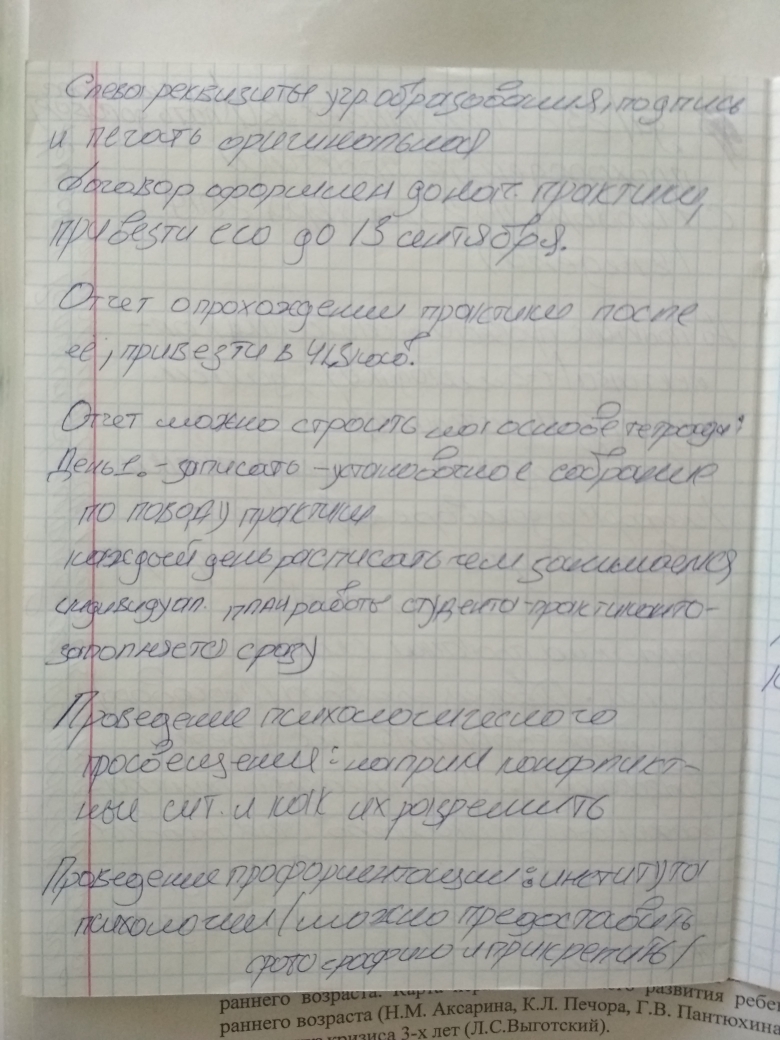 Слева реквизиты учр. образования, подпись
и печать оригинальная
договор оформлен до нач. практики,
привезти его до 15 сентября.
Отчет о прохождении практики после
её, привезти в
Отчет можно строить на основе тетради:
День 1. - записать - установочное собрание
по поводу практики
каждый день расписать чем занимаемся
индивидуал. план работы студента-практиканта-
заполняется сразу
Проведение психологического
просвещения: наприм конфликт-
ные сит. и как их разрешить
Проведения профориентации: института
психологии (можно предоставить
фотографию и прикрепить)
раннего возраста. Карта развития ребе
раннего возраста (Н.М. Аксарина, К.Л. Печора, Г.В. Пантюхина
кризиса 3-х лет (Л.С.Выготский).